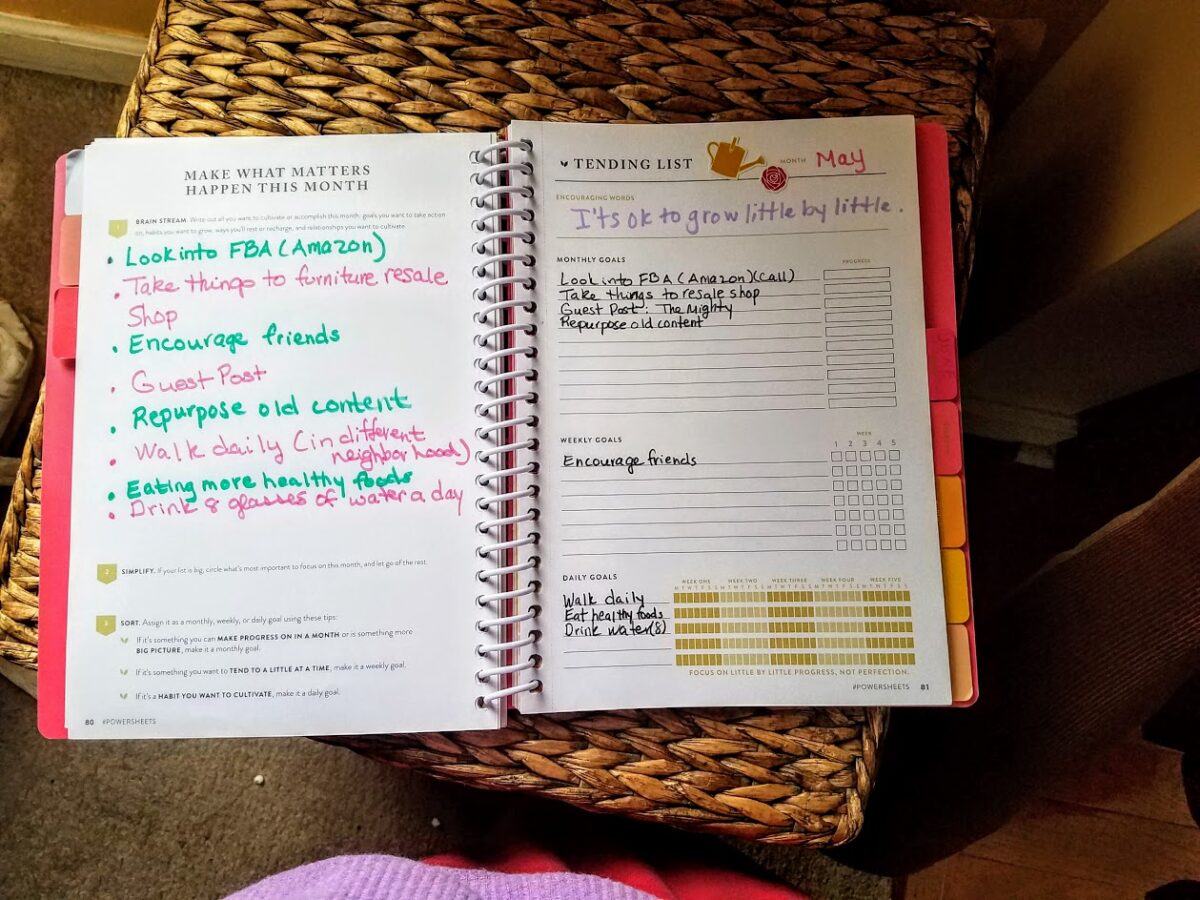 MAKE WHAT MATTERS
HAPPEN THIS MONTH
1 BRAIN STREAM. Write out all you want to cultivate or accomplish this month: goals you want to take action
on, habits you want to grow, ways you'll rest or recharge, and relationships you want to cultivate.
• Look into FBA (Amazon)
• Take things to furniture resale
Shop
• Encourage friends
• Guest Post
• Repurpose old content
• Walk daily (in different
neighborhood)
• Eating more healthy foods
• Drink 8 glasses of water a day
2 SIMPLIFY. If your list is big, circle what's most important to focus on this month, and let go of the rest.
3 SORT. Assign it as a monthly, weekly, or daily goal using these tips:
If it's something you can MAKE PROGRESS ON IN A MONTH or is something more
BIG PICTURE, make it a monthly goal.
If it's something you want to TEND TO A LITTLE AT A TIME, make it a weekly goal.
If it's a HABIT YOU WANT TO CULTIVATE, make it a daily goal.
80 #POWERSHEETS
TENDING LIST
MONTH May
ENCOURAGING WORDS
I'ts ok to grow little by little.
MONTHLY GOALS PROGRESS
Look into FBA (Amazon)(call)
Take things to resale shop
Guest Post: The Mighty
Repurpose old content
WEEKLY GOALS WEEK
1 2 3 4 5
Encourage friends
DAILY GOALS WEEK ONE WEEK TWO WEEK THREE WEEK FOUR WEEK FIVE
M T W T F S S M T W T F S S M T W T F S S M T W T F S S M T W T F S S
Walk daily
Eat healthy foods
Drink water(8)
FOCUS ON LITTLE BY LITTLE PROGRESS, NOT PERFECTION.
#POWERSHEETS 81